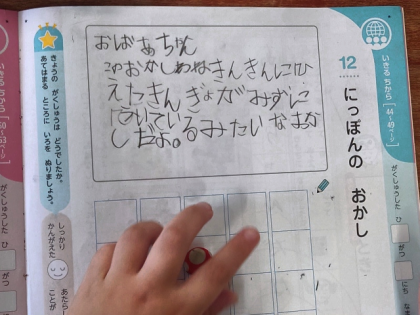 いきる ちから(44〜49ページ)
がくしゅうした ひ
がつ
にち
12
にっぽんの おかし
おばあちゃん
このおかしわねきんきんにひ
えたきんぎょがみずに
ういているみたいなおか
しだよ。
きょうの がくしゅうは どうでしたか。
あてはまる ところに いろを ぬりましょう。
しっかり
かんがえた
あたらし
ことが
がくしゅうした ひ
がつ